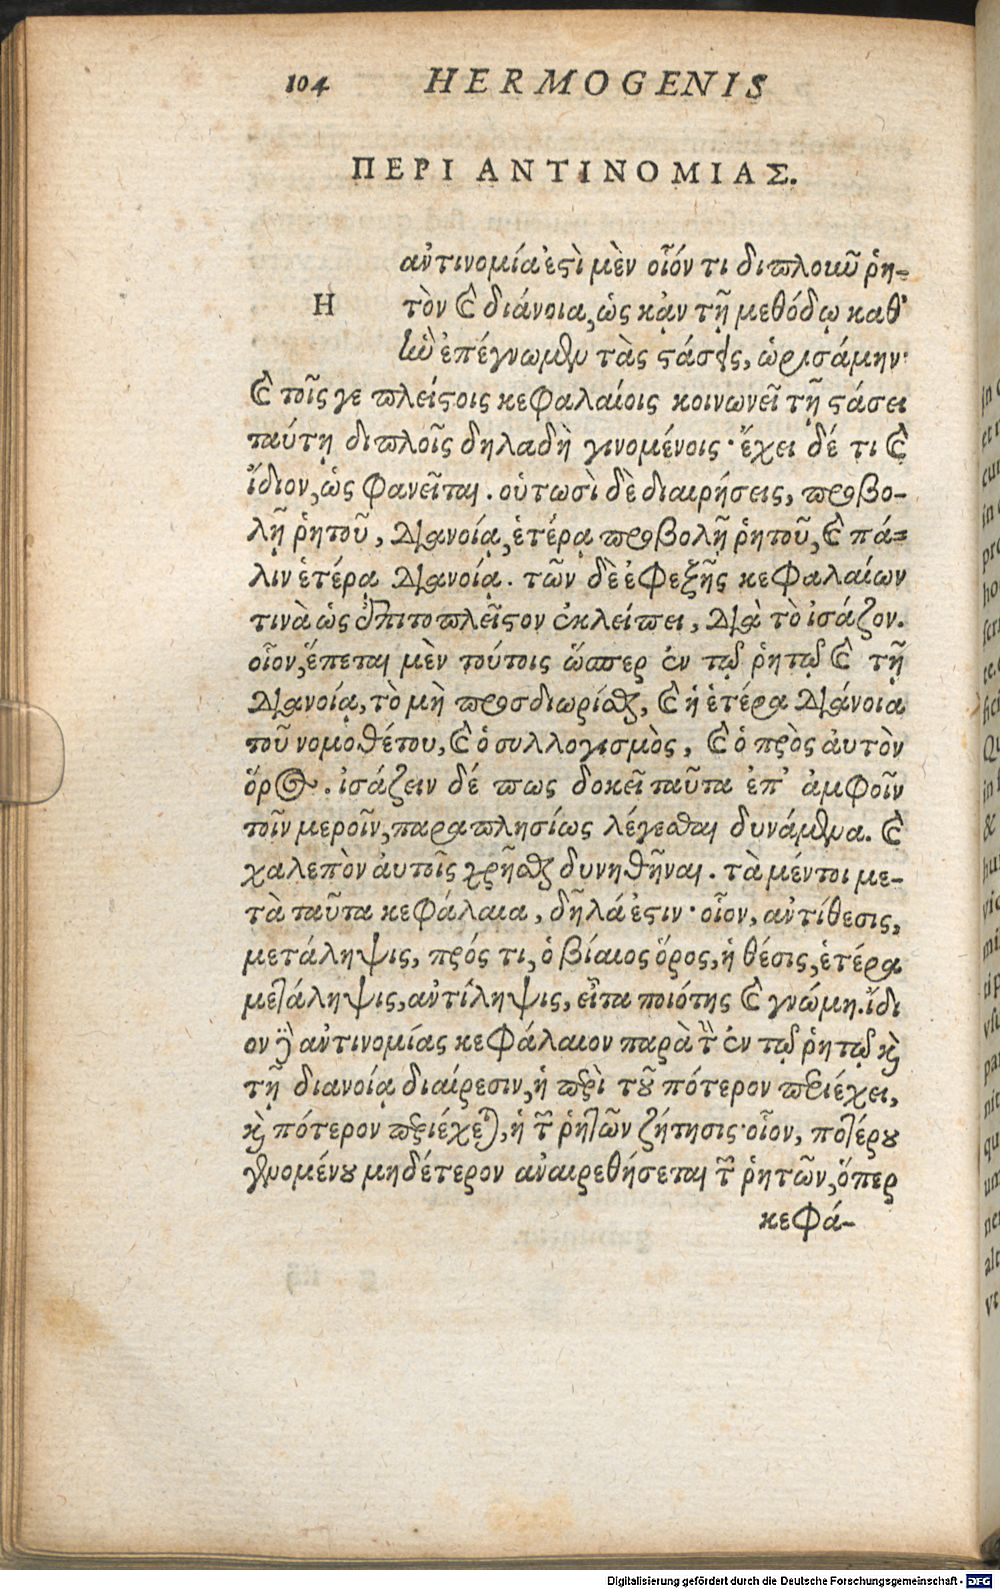 104 HERMOGENIS
ΠΕΡΙ ΑΝΤΙΝΟΜΙΑΣ.
Η
ἀντινομία ἐστὶ μὲν οἷόν τι διπλοκοῦ ῥη-
τὸν καὶ διάνοια, ὡς κἀν τῇ μεθόδῳ καθ'
ἣν ἐπέγνωμεν τὰς στάσεις, ὡρισάμην·
καὶ τοῖς γε πλείστοις κεφαλαίοις κοινωνεῖ τῇ στάσει
ταύτῃ διπλοῖς δηλαδὴ γινομένοις· ἔχει δέ τι καὶ
ἴδιον, ὡς φανεῖται. οὑτωσὶ δὲ διαιρήσεις, προβο-
λῇ ῥητοῦ, διανοίᾳ, ἑτέρᾳ προβολῇ ῥητοῦ, καὶ πά-
λιν ἑτέρᾳ διανοίᾳ. τῶν δὲ ἐφεξῆς κεφαλαίων
τινὰ ὡς ἐπιτοπλεῖστον ἐκλείπει, διὰ τὸ ἰσάζον.
οἷον, ἕπεται μὲν τούτοις ὥσπερ ἐν τῷ ῥητῷ καὶ τῇ
διανοίᾳ, τὸ μὴ προσδιωρίσθαι, καὶ ἡ ἑτέρα διάνοια
τοῦ νομοθέτου, καὶ ὁ συλλογισμὸς, καὶ ὁ πρὸς αὐτὸν
ὅρος. ἰσάζειν δέ πως δοκεῖ ταῦτα ἐπ' ἀμφοῖν
τοῖν μεροῖν, παραπλησίως λέγεσθαι δυνάμενα. καὶ
χαλεπὸν αὐτοῖς χρῆσθαι δυνηθῆναι. τὰ μέντοι με-
τὰ ταῦτα κεφάλαια, δῆλά ἐστιν· οἷον, ἀντίθεσις,
μετάληψις, πρός τι, ὁ βίαιος ὅρος, ἡ θέσις, ἑτέρα
μετάληψις, ἀντίληψις, εἶτα ποιότης καὶ γνώμη. ἴδι
ον δὲ ἀντινομίας κεφάλαιον παρὰ τὴν ἐν τῷ ῥητῷ καὶ
τῇ διανοίᾳ διαίρεσιν, ἡ περὶ τοῦ πότερον περιέχει,
καὶ πότερον περιέχεται, ἡ τῶν ῥητῶν ζήτησις· οἷον, ποτέρου
γενομένου μηδέτερον ἀναιρεθήσεται τῶν ῥητῶν, ὅπερ
κεφά-
Digitalisierung gefördert durch die Deutsche Forschungsgemeinschaft - DFG